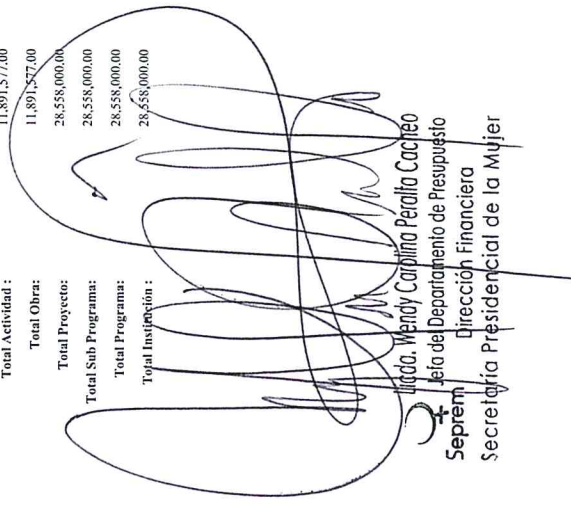 Total Actividad : 11,891,577.00
Total Obra: 11,891,577.00
Total Proyecto: 28,558,000.00
Total Sub Programa: 28,558,000.00
Total Programa: 28,558,000.00
Total Institución : 28,558,000.00
Licda. Wendy Carolina Peralta Cacheo
Jefa del Departamento de Presupuesto
Dirección Financiera
Seprem
Secretaría Presidencial de la Mujer